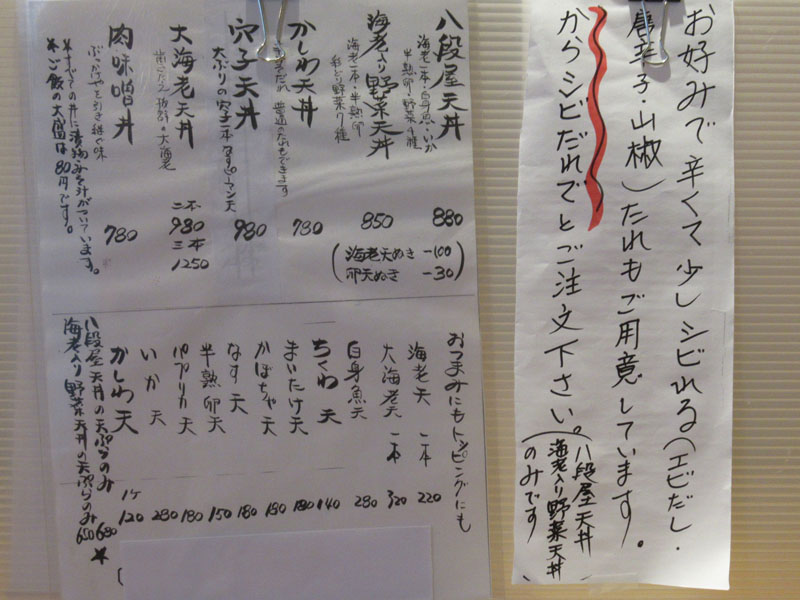 お好みで辛くて少しシビれる(エビだし・
唐辛子・山椒)たれもご用意しています。
からシビだれでとご注文下さい。
(八段屋天丼
海老入り野菜天丼
のみです)
八段屋天丼 880
海老一本・白身魚・いか
半熟卵・野菜4種
海老入り野菜天丼 850
海老一本・半熟卵
彩どり野菜7種
(海老天ぬき -100
卵天ぬき -30)
かしわ天丼 780
普通のたれもできます
穴子天丼 980
大ぶりの穴子一本なすピーマン天
大海老天丼 二本 980
三本 1250
肉味噌丼 780
ぶったまやを引き継ぐ味
*すべての丼に漬物みそ汁がついています。
*ご飯の大盛は80円です。
おつまみにもトッピングにも
海老天 一本 220
大海老天 一本 320
白身魚天 280
ちくわ天 140
まいたけ天 180
かぼちゃ天 180
なす天 180
半熟卵天 150
パプリカ天 180
いか天 280
かしわ天 1ケ 120
八段屋天丼の天ぷらのみ 680
海老入り野菜天丼の天ぷらのみ 650